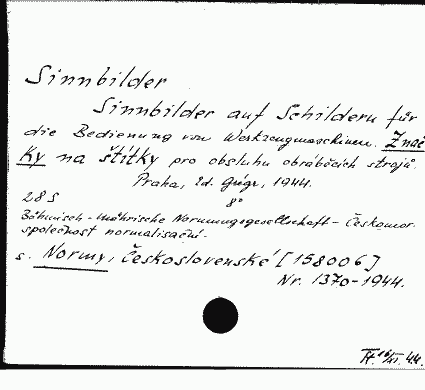 Sinnbilder
Sinnbilder auf Schildern für
die Bedienung von Werkzeugmaschinen. Znač
ky na štítky pro obsluhu obráběcích strojů.
Praha, Ed. Grégr, 1944.
28 S 8°
Böhmisch-Mährische Normungsgesellschaft - Českomor.
společnost normalisační.
s. Normy, Československé [158006]
Nr. 1370-1944.